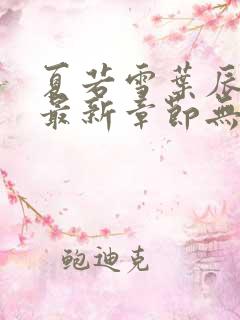 夏若雪葉辰
最新章節無
鲍迪克